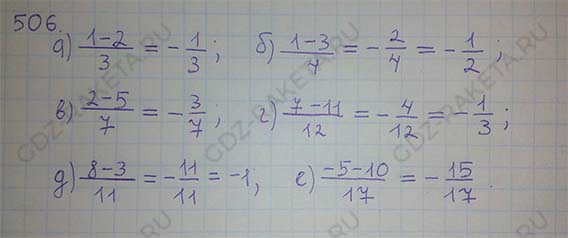 506.
а) (1-2)/3 = -1/3; б) (1-3)/4 = -2/4 = -1/2;
в) (2-5)/7 = -3/7; г) (7-11)/12 = -4/12 = -1/3;
д) (8-3)/11 = -11/11 = -1; е) (-5-10)/17 = -15/17.
GDZ-RAKETA.RU